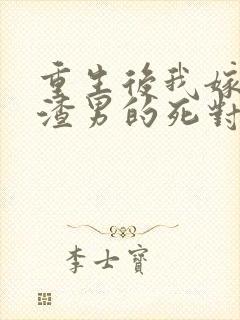 重生後我嫁
渣男的死對
李士寶